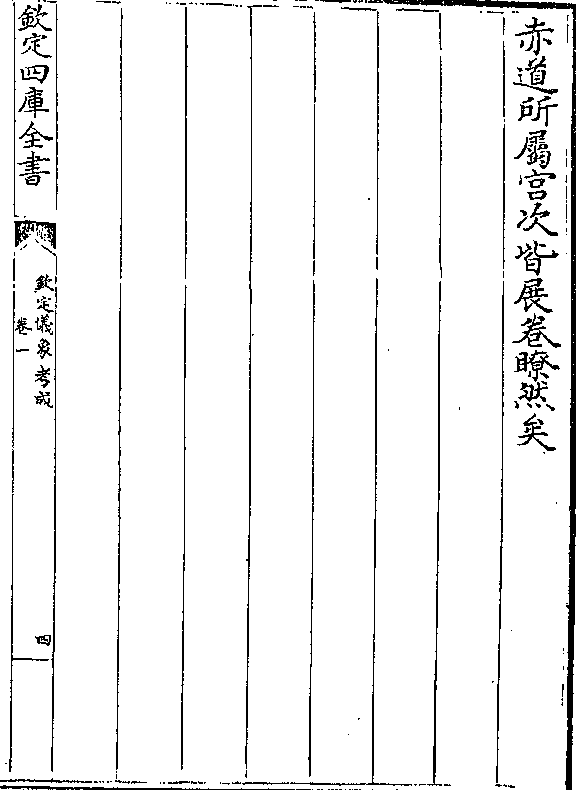 赤道所屬宫次皆展卷瞭然矣
欽定四庫全書
欽定儀象考成
卷一
四